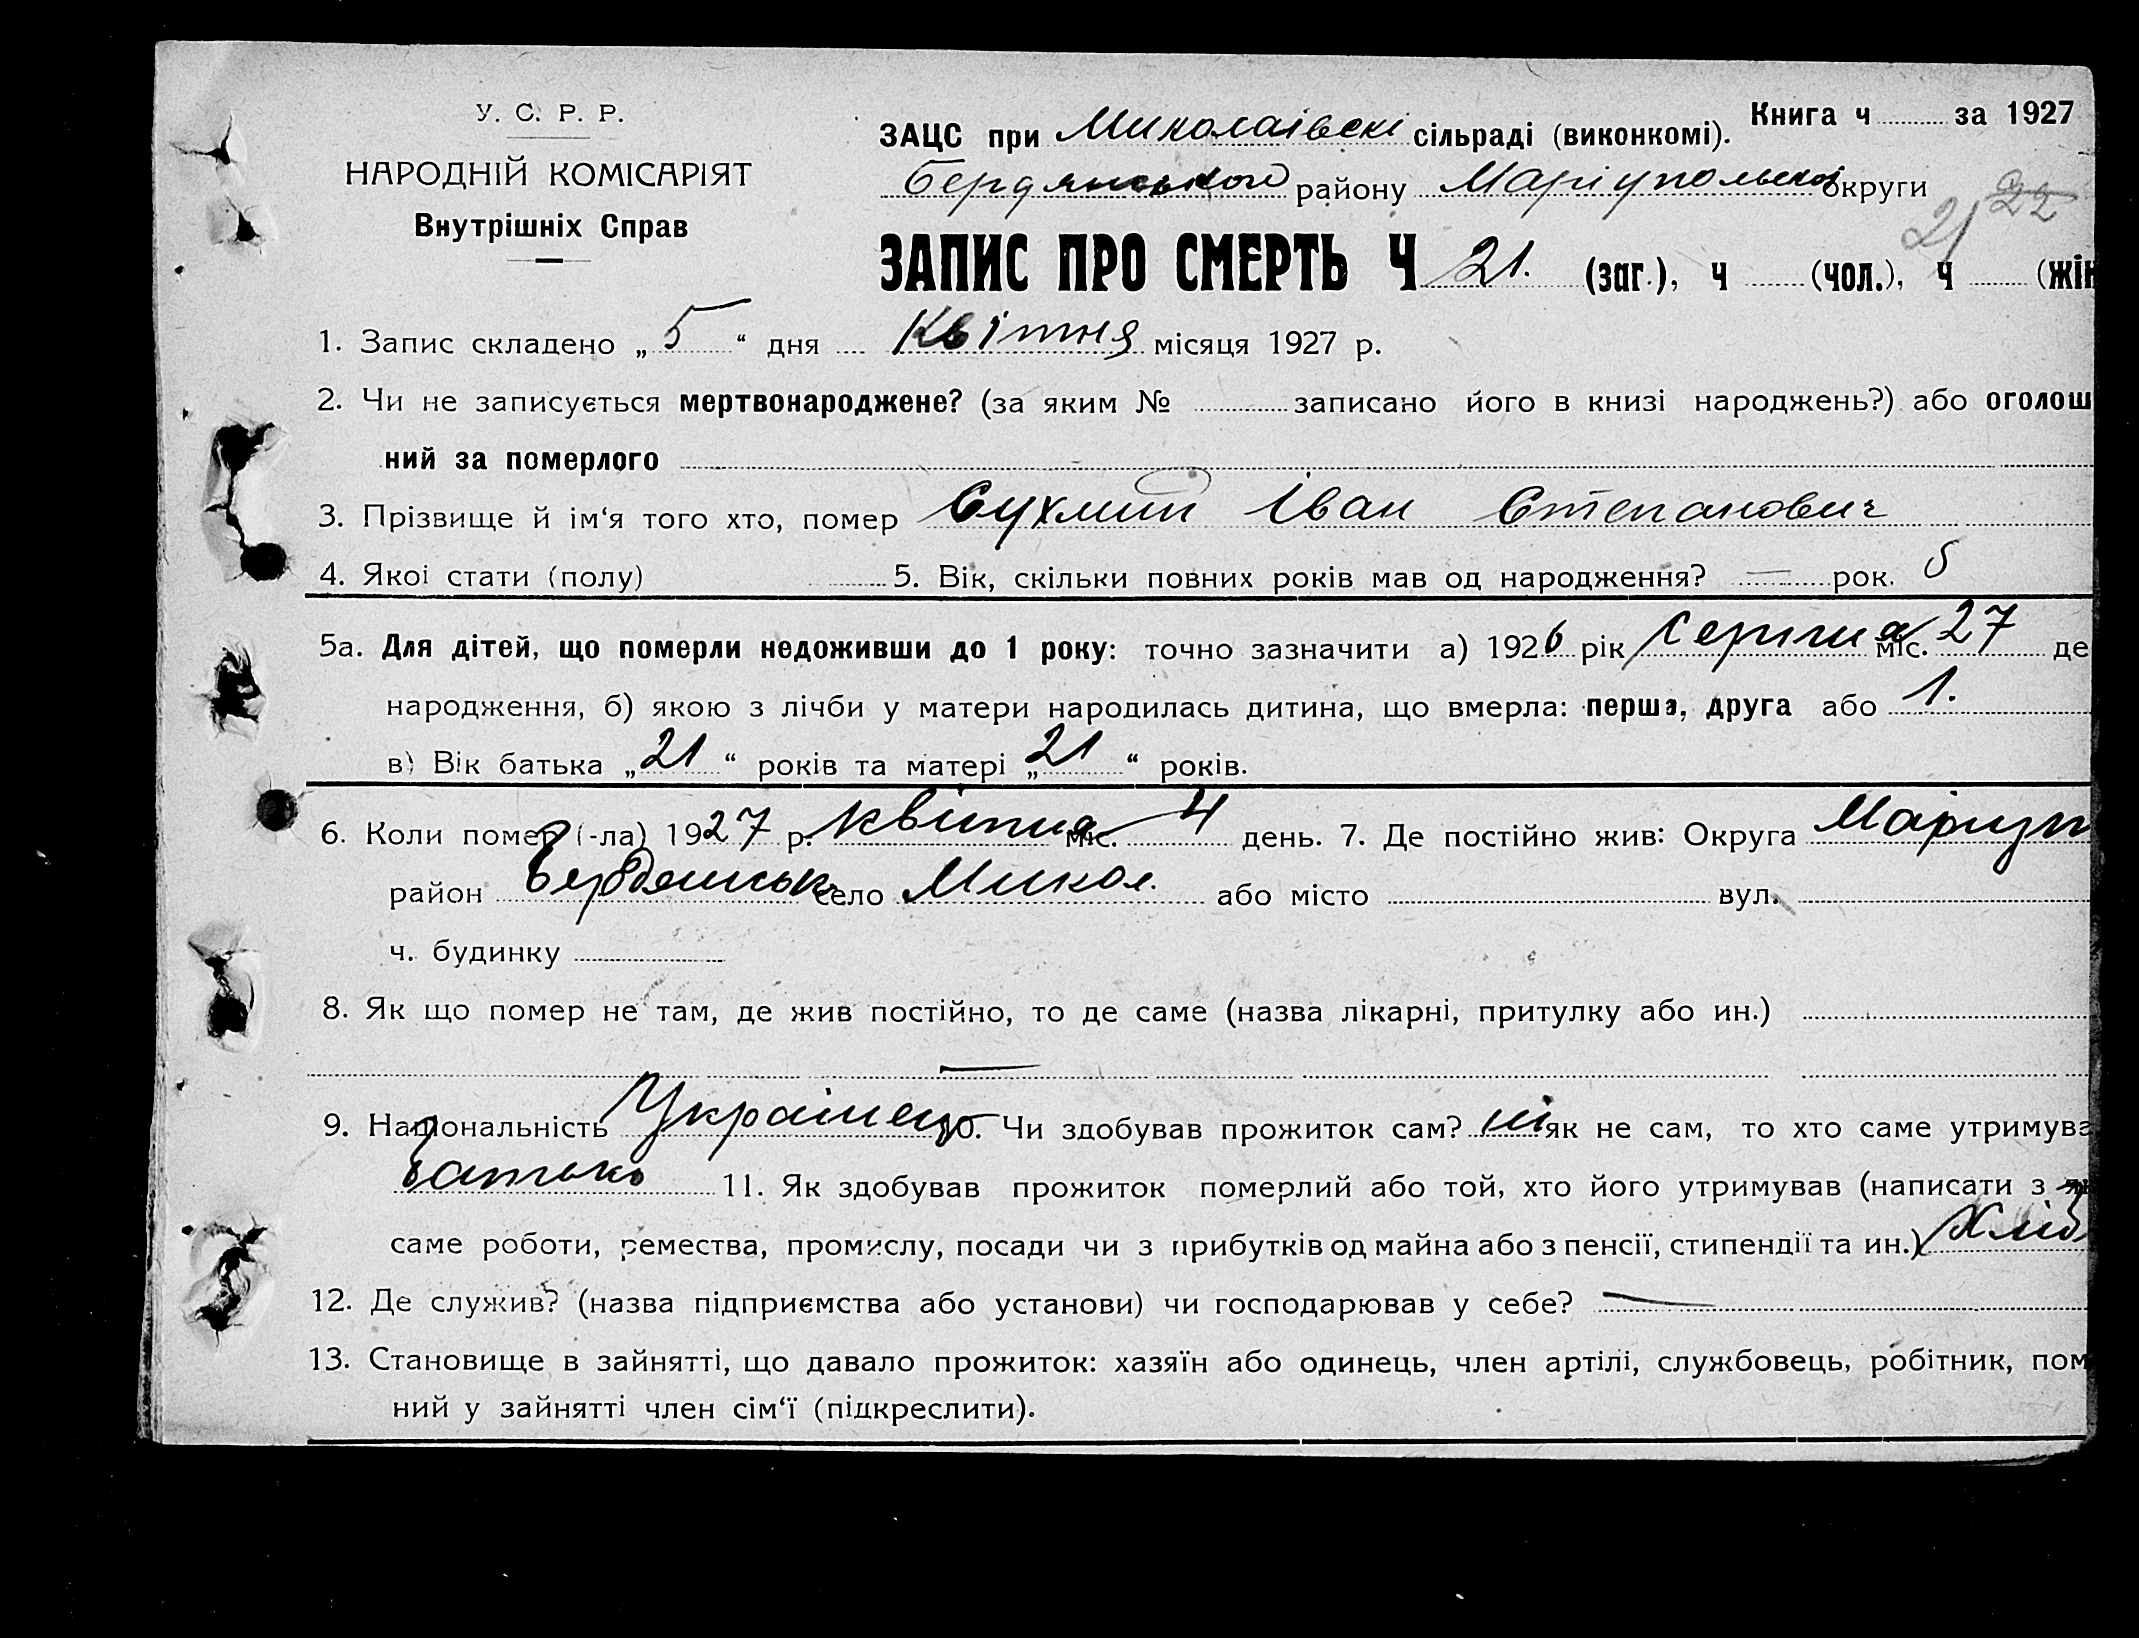 У. С. Р. Р.
НАРОДНІЙ КОМІСАРІЯТ
Внутрішніх Справ
Книга ч за 1927
ЗАЦС при Миколаївскі сільраді (виконкомі).
Бердянського району Маріупольської округи
21 22
ЗАПИС ПРО СМЕРТЬ Ч 21. (заг.), ч (чол.), ч (жін
1. Запис складено „ 5 “ дня Квітня місяця 1927 р.
2. Чи не записується мертвонароджене? (за яким № записано його в книзі народжень?) або оголош
ний за померлого
3. Прізвище й ім‘я того хто, помер Сухмит Іван Степанович
4. Якої стати (полу) 5. Вік, скільки повних років мав од народження? — рок. б
5а. Для дітей, що померли недоживши до 1 року: точно зазначити а) 1926 рік Серпня міс. 27 де
народження, б) якою з лічби у матери народилась дитина, що вмерла: перша, друга або 1.
в) Вік батька „ 21 “ років та матері „ 21 “ років.
6. Коли помер (-ла) 1927 р. квітня міс. 4 день. 7. Де постійно жив: Округа Маріуп
район Бердянськ село Микол. або місто вул.
ч. будинку
8. Як що помер не там, де жив постійно, то де саме (назва лікарні, притулку або ин.)
—
9. Національність Українець 10. Чи здобував прожиток сам? ні як не сам, то хто саме утримува
батько 11. Як здобував прожиток померлий або той, хто його утримував (написати з як
саме роботи, ремества, промислу, посади чи з прибутків од майна або з пенсії, стипендії та ин.) Хліб
12. Де служив? (назва підприємства або установи) чи господарював у себе? —
13. Становище в зайнятті, що давало прожиток: хазяїн або одинець, член артілі, службовець, робітник, пом
ний у зайнятті член сім‘ї (підкреслити).